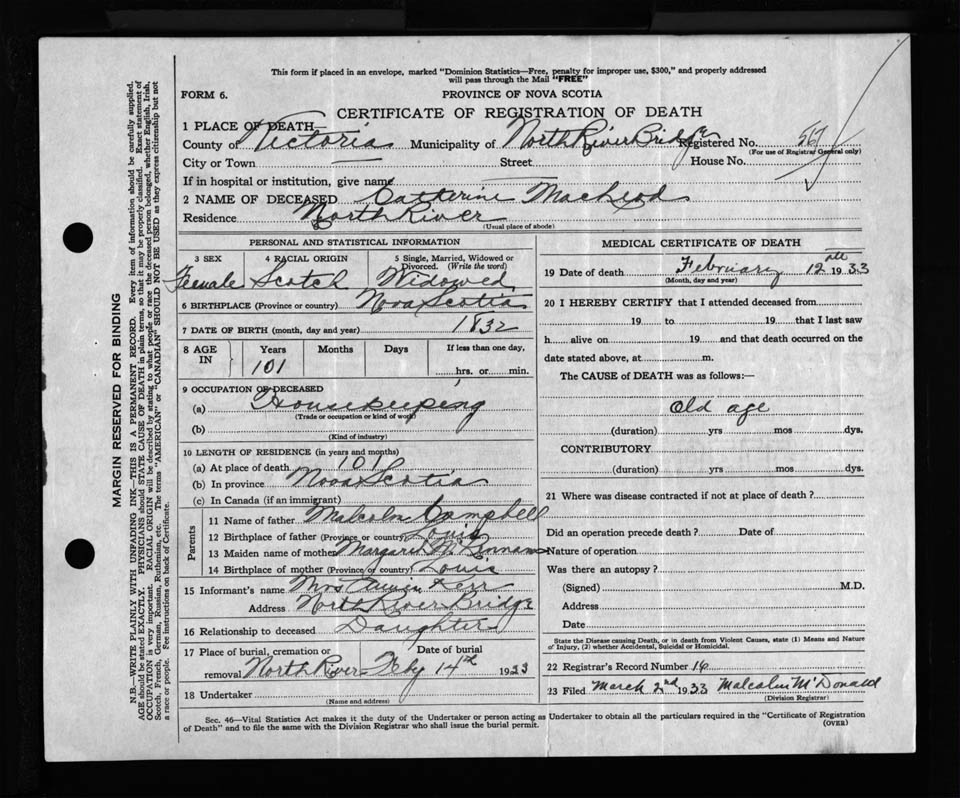 This form if placed in an envelope, marked "Dominion Statistics—Free, penalty for improper use, $300," and properly addressed
will pass through the Mail "FREE"
FORM 6.
PROVINCE OF NOVA SCOTIA
CERTIFICATE OF REGISTRATION OF DEATH
1 PLACE OF DEATH
County of Victoria Municipality of North River Bridge Registered No. 567
(For use of Registrar General only)
City or Town — Street House No.
If in hospital or institution, give name
2 NAME OF DECEASED Catherine MacLeod
Residence North River
(Usual place of abode)
PERSONAL AND STATISTICAL INFORMATION
3 SEX 4 RACIAL ORIGIN 5 Single, Married, Widowed or Divorced. (Write the word)
Female Scotch Widowed
6 BIRTHPLACE (Province or country) Nova Scotia
7 DATE OF BIRTH (month, day and year) 1832
8 AGE IN Years Months Days If less than one day,
101 hrs. or min.
9 OCCUPATION OF DECEASED
(a) Housekeeping
(Trade or occupation or kind of work)
(b)
(Kind of industry)
10 LENGTH OF RESIDENCE (in years and months)
(a) At place of death 101
(b) In province Nova Scotia
(c) In Canada (if an immigrant)
Parents
11 Name of father Malcolm Campbell
12 Birthplace of father (Province or country)
13 Maiden name of mother Margaret
14 Birthplace of mother (Province or country)
15 Informant's name Mrs Kerr
Address North River Bridge
16 Relationship to deceased Daughter
17 Place of burial, cremation or removal Date of burial
North River Feby 14th 1933
18 Undertaker
(Name and address)
MEDICAL CERTIFICATE OF DEATH
19 Date of death February 12th 1933
(Month, day and year)
20 I HEREBY CERTIFY that I attended deceased from
19 to 19 that I last saw
h alive on 19 and that death occurred on the
date stated above, at m.
The CAUSE of DEATH was as follows:—
Old age
(duration) yrs mos dys.
CONTRIBUTORY
(duration) yrs mos dys.
21 Where was disease contracted if not at place of death?
Did an operation precede death? Date of
Nature of operation
Was there an autopsy?
(Signed) M.D.
Address
Date
State the Disease causing Death, or in death from Violent Causes, state (1) Means and Nature
of Injury, (2) whether Accidental, Suicidal or Homicidal.
22 Registrar's Record Number 16
23 Filed March 2nd 1933 Malcolm McDonald
(Division Registrar)
Sec. 46—Vital Statistics Act makes it the duty of the Undertaker or person acting as Undertaker to obtain all the particulars required in the "Certificate of Registration
of Death" and to file the same with the Division Registrar who shall issue the burial permit.
(OVER)
MARGIN RESERVED FOR BINDING
N.B.—WRITE PLAINLY WITH UNFADING INK—THIS IS A PERMANENT RECORD. Every item of information should be carefully supplied.
AGE should be stated EXACTLY. PHYSICIANS should STATE CAUSE OF DEATH in plain terms, so that it may be properly classified. Exact statement of
OCCUPATION is very important. RACIAL ORIGIN will be described by stating to what people or race the deceased person belonged, whether English, Irish,
Scotch, French, German, Russian, Ruthenian, etc. The terms "AMERICAN" or "CANADIAN" SHOULD NOT BE USED as they express citizenship but not
a race or people. See instructions on back of Certificate.